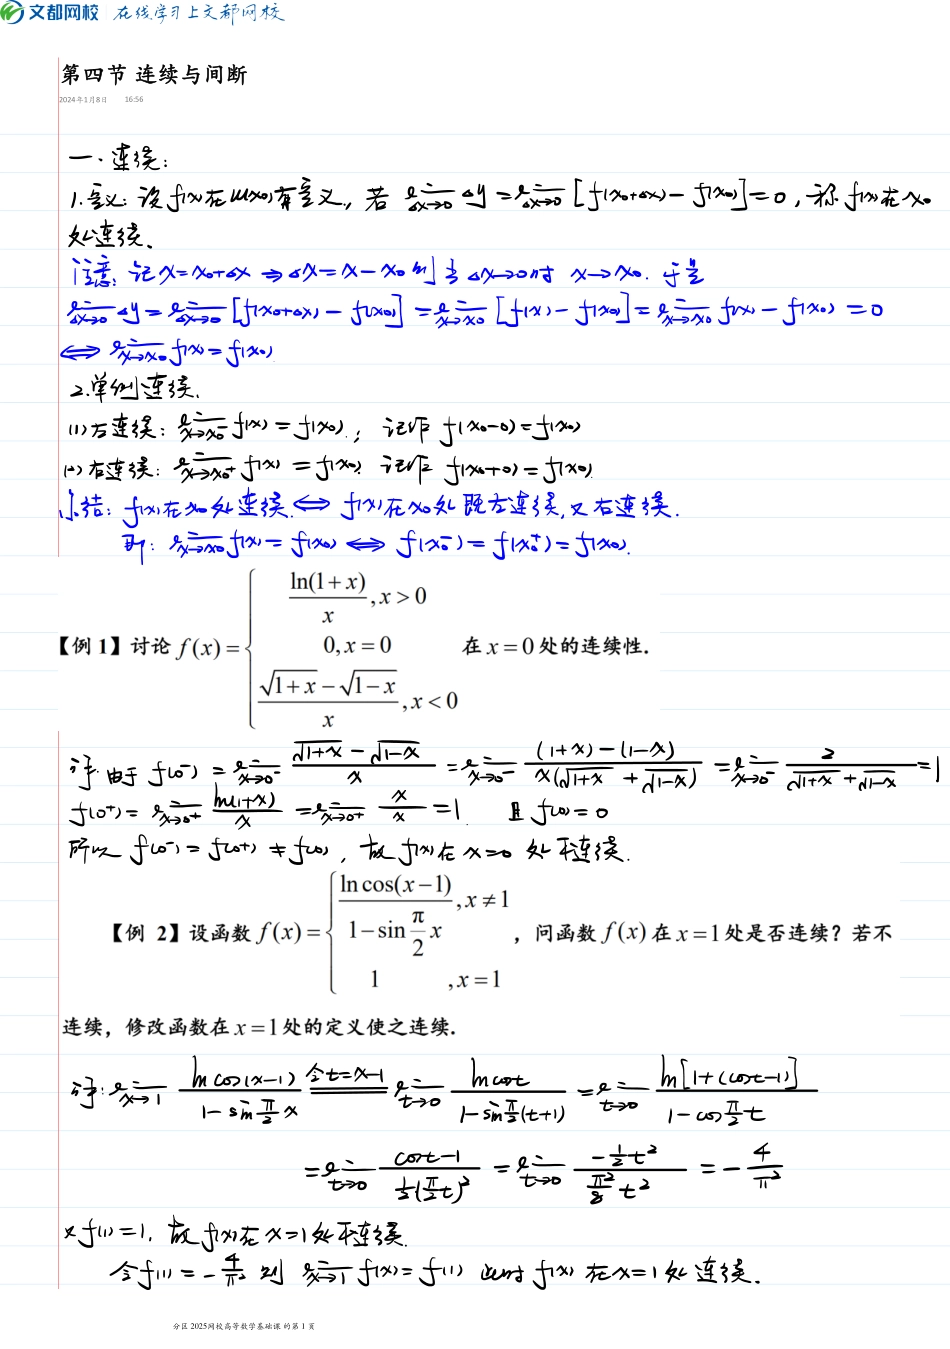 文都网校 在线学习上文都网校
第四节 连续与间断
2024年1月8日 16:56
一、连续：
1.定义：设f(x)在U(x₀)有定义，若 lim_{Δx→0} Δy = lim_{Δx→0} [f(x₀+Δx) − f(x₀)] = 0，称f(x)在x₀
处连续。
注意：记x=x₀+Δx ⇒ Δx=x−x₀ 则当Δx→0时 x→x₀. 于是
lim_{Δx→0} Δy = lim_{Δx→0} [f(x₀+Δx) − f(x₀)] = lim_{x→x₀} [f(x) − f(x₀)] = lim_{x→x₀} f(x) − f(x₀) = 0
⇔ lim_{x→x₀} f(x) = f(x₀)
2.单侧连续.
(1)左连续：lim_{x→x₀⁻} f(x) = f(x₀)，记作 f(x₀−0)=f(x₀)
(2)右连续：lim_{x→x₀⁺} f(x) = f(x₀) 记作 f(x₀+0)=f(x₀)
小结：f(x)在x₀处连续 ⇔ f(x)在x₀处既左连续，又右连续.
即：lim_{x→x₀} f(x) = f(x₀) ⇔ f(x₀⁻) = f(x₀⁺) = f(x₀).
【例 1】讨论 f(x) = { ln(1+x)/x, x>0
0, x=0
(√(1+x) − √(1−x))/x, x<0 在 x=0 处的连续性.
详：由于 f(0⁻) = lim_{x→0⁻} (√(1+x) − √(1−x))/x = lim_{x→0⁻} ((1+x)−(1−x))/(x(√(1+x) + √(1−x))) = lim_{x→0⁻} 2/(√(1+x) + √(1−x)) = 1
f(0⁺) = lim_{x→0⁺} ln(1+x)/x = lim_{x→0⁺} x/x = 1. 且 f(0)=0
所以 f(0⁻) = f(0⁺) ≠ f(0)，故f(x)在x=0处不连续.
【例 2】设函数 f(x) = { ln cos(x−1)/(1−sin (π/2)x), x≠1
1 , x=1 ，问函数 f(x) 在 x=1 处是否连续？若不
连续，修改函数在 x=1 处的定义使之连续.
详：lim_{x→1} ln cos(x−1)/(1−sin (π/2)x) 令t=x−1 = lim_{t→0} ln cost/(1−sin (π/2)(t+1)) = lim_{t→0} ln[1+(cost−1)]/(1−cos (π/2)t)
= lim_{t→0} (cost−1)/(½((π/2)t)²) = lim_{t→0} (−½t²)/((π²/8)t²) = −4/π²
又f(1)=1，故f(x)在x=1处不连续.
令f(1)=−4/π² 则 lim_{x→1} f(x)=f(1) 此时f(x)在x=1处连续.
分区 2025网校高等数学基础课 的第 1 页